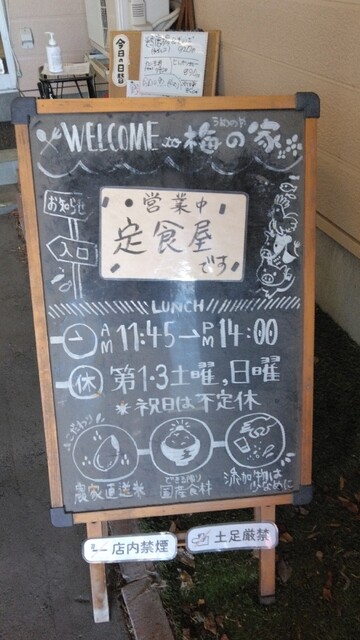 今日の日替
WELCOME to 梅の家
うめのや
お知らせ
入口
・営業中
定食屋
です
LUNCH
AM 11:45→PM 14:00
休 第1・3土曜,日曜
※祝日は不定休
こだわり
農家直送米
できる限り
国産食材
添加物は
少なめに
店内禁煙
土足厳禁